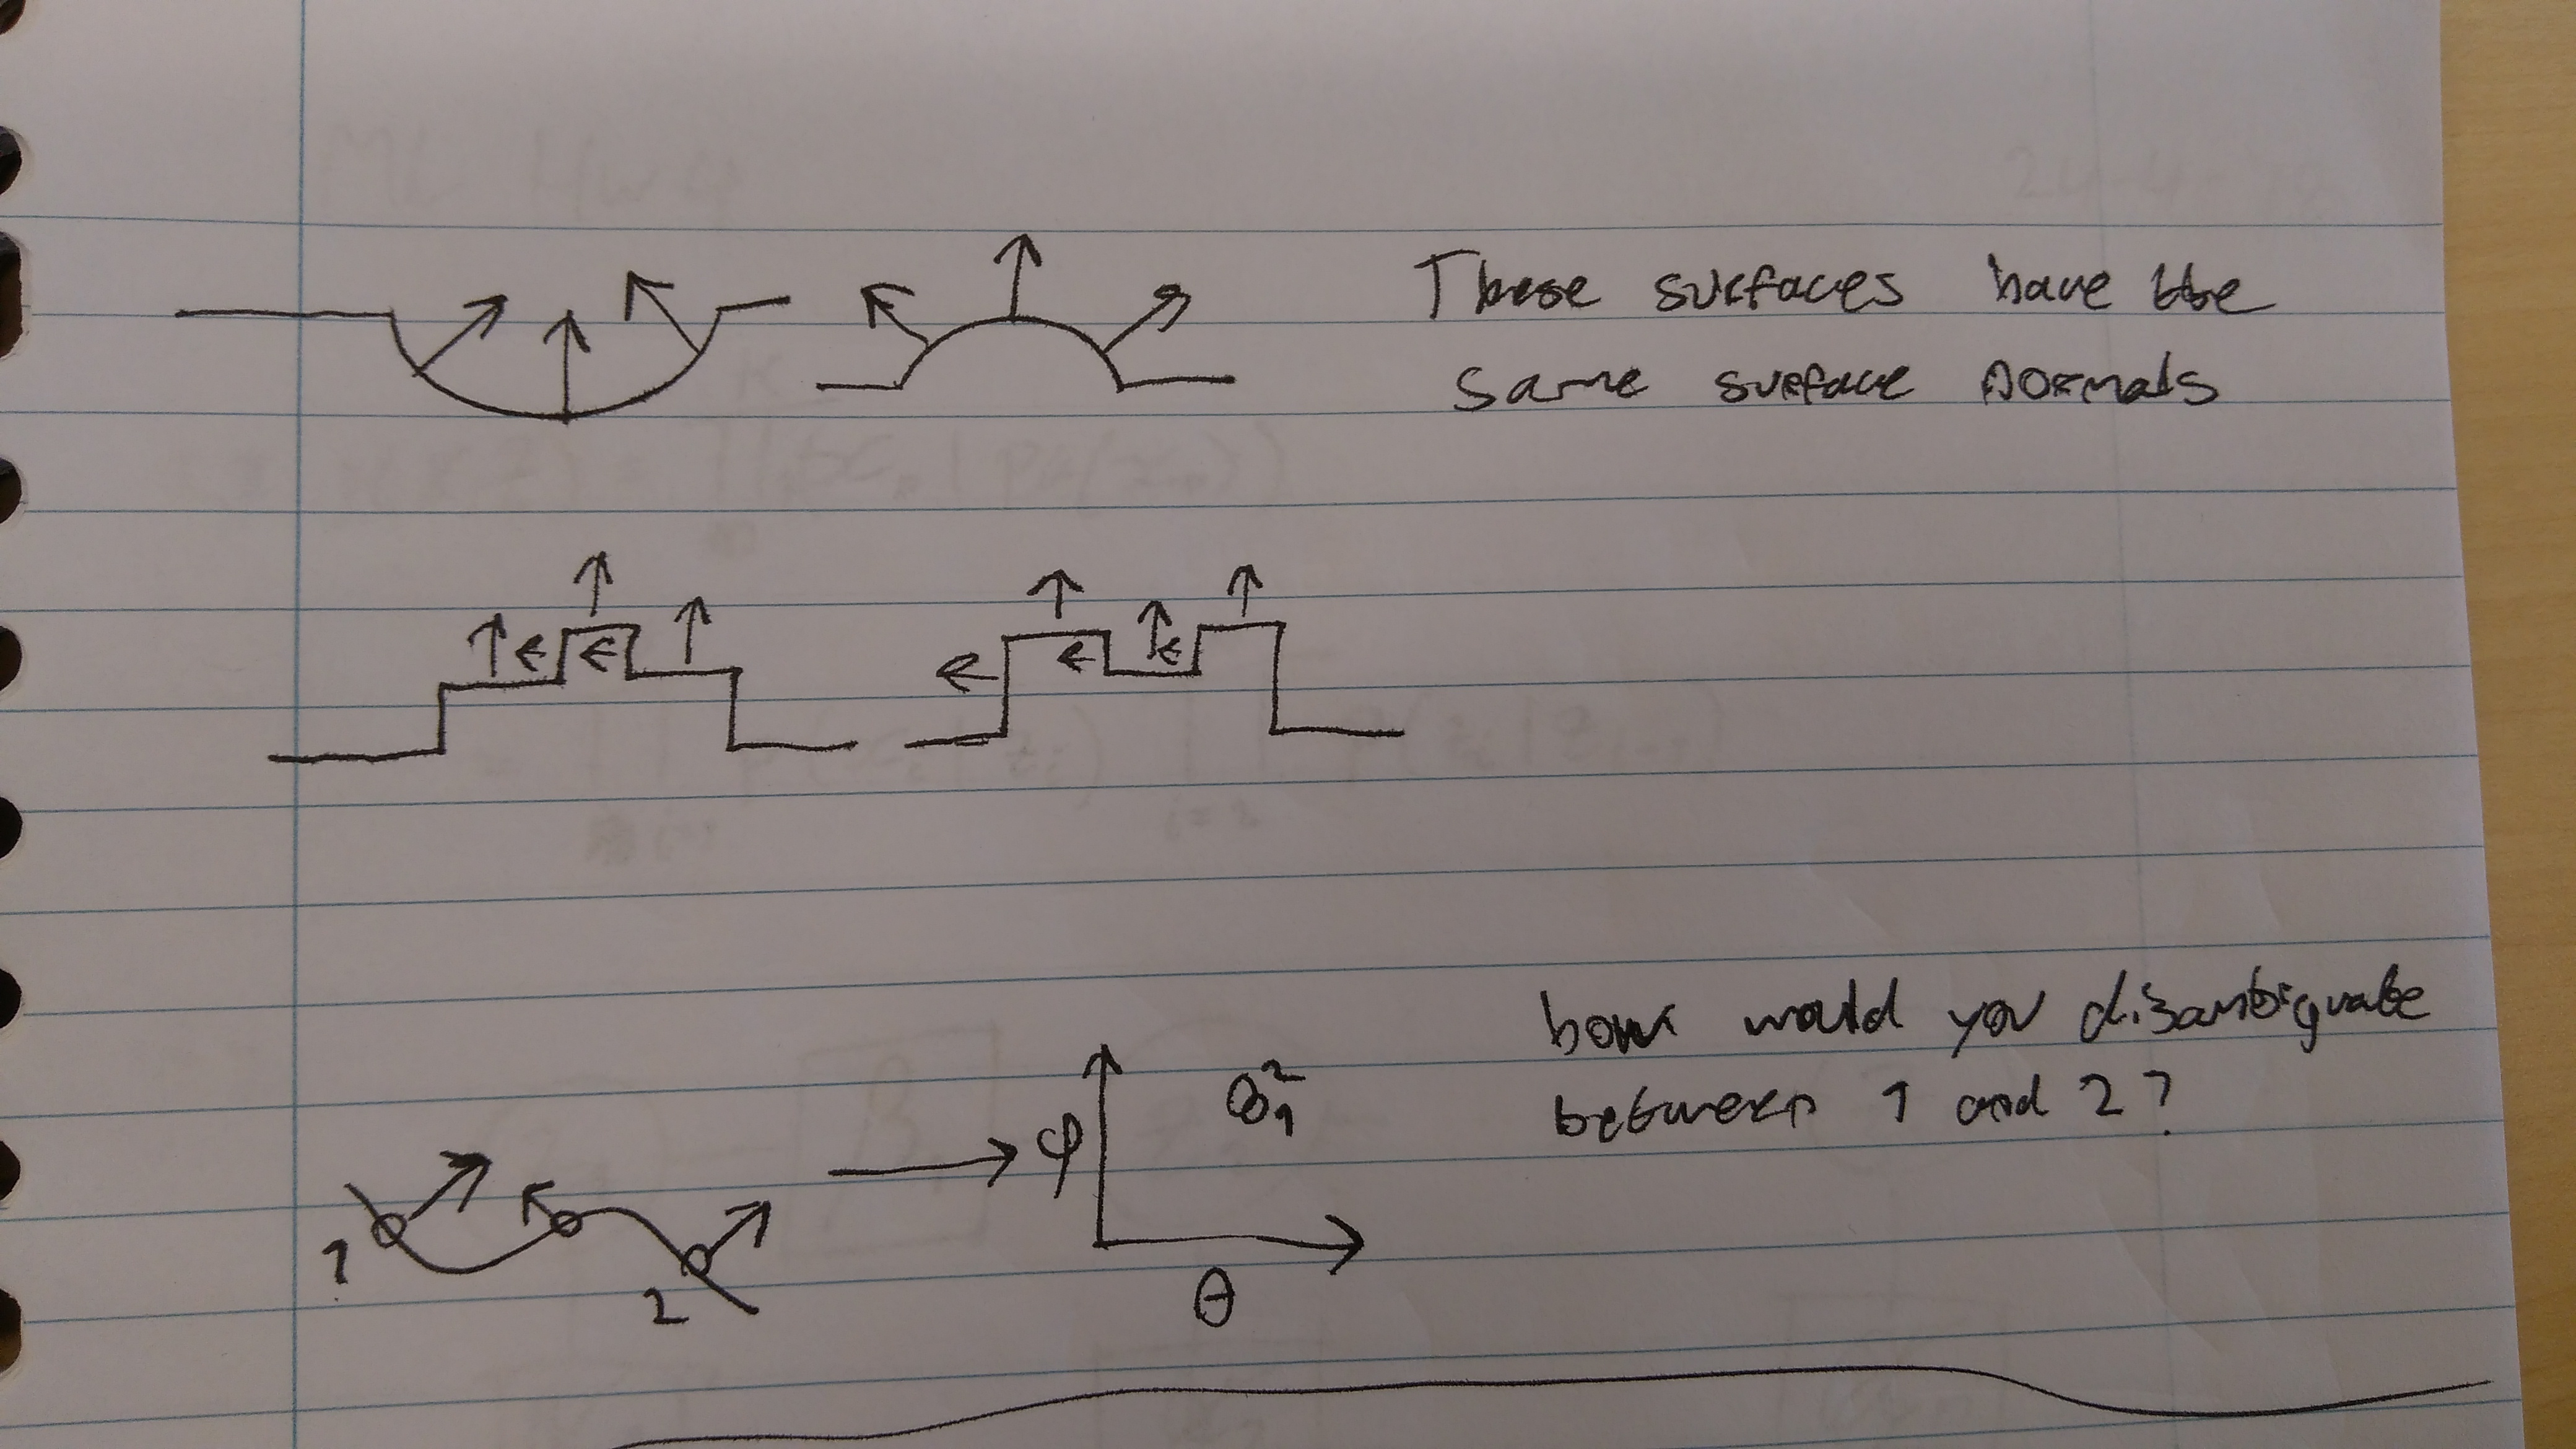 These surfaces have the
same surface normals
how would you disambiguate
φ
2
1
between 1 and 2?
1
2
θ